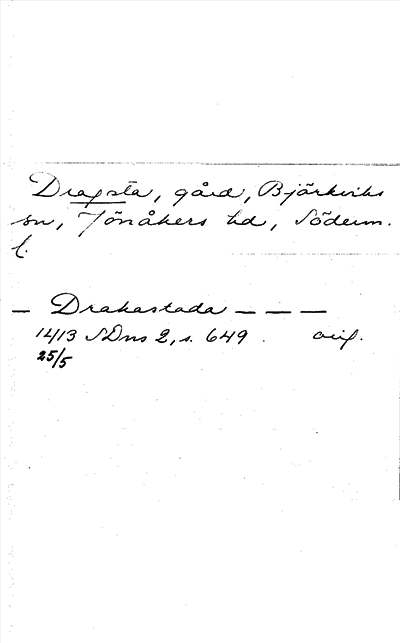 Dragsta, gård, Björkviks
sn, Jönåkers hd, Söderm.
l.
— Drakastada — — —
1413 SDns 2, s. 649 . orig.
25/5